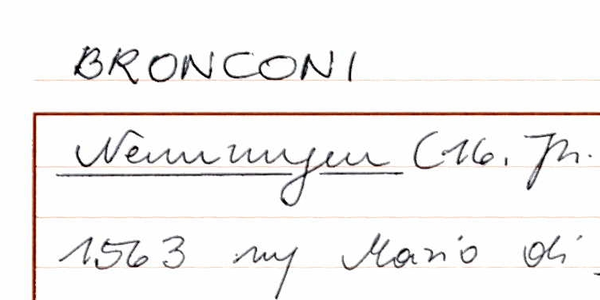 BRONCONI
Nennungen (16. Jh.
1563 Mario di